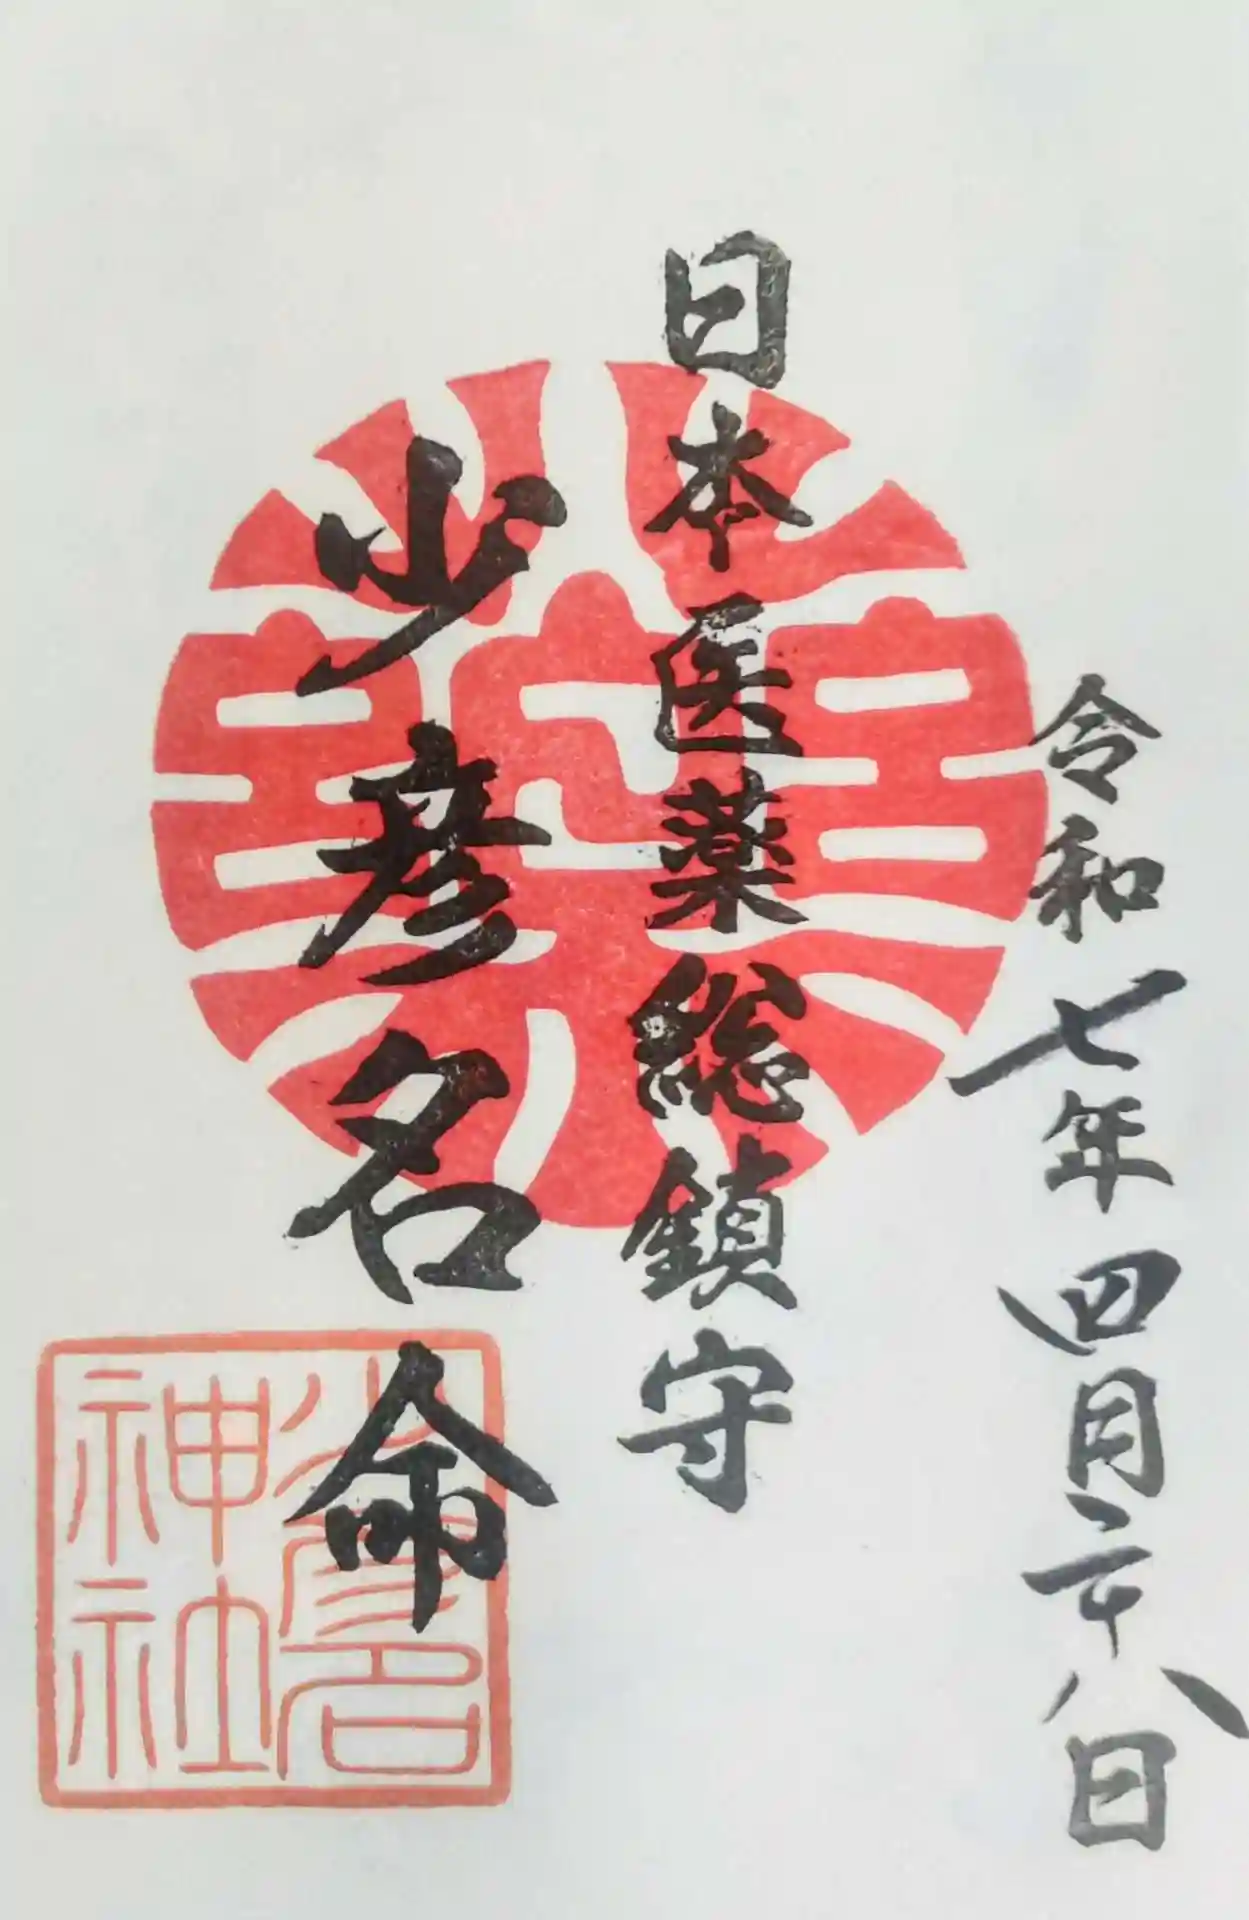 令和七年四月二十八日
日本医薬総鎮守
少彦名命
薬
少彦名
神社